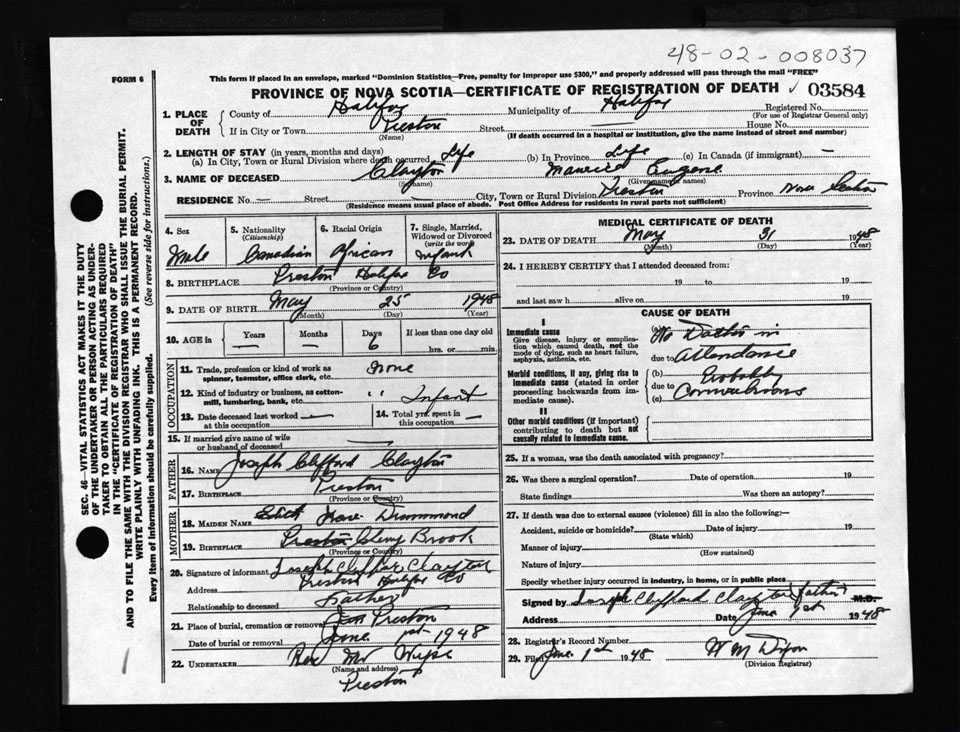 48-02-008037
FORM 6
This form if placed in an envelope, marked "Dominion Statistics—Free, penalty for improper use $300," and properly addressed will pass through the mail "FREE"
PROVINCE OF NOVA SCOTIA—CERTIFICATE OF REGISTRATION OF DEATH ✓ 03584
1. PLACE OF DEATH
County of Halifax Municipality of Halifax Registered No.
(For use of Registrar General only)
If in City or Town Preston Street — House No.
(Name) (If death occurred in a hospital or institution, give the name instead of street and number)
2. LENGTH OF STAY (in years, months and days)
(a) In City, Town or Rural Division where death occurred Life (b) In Province Life (c) In Canada (if immigrant) —
3. NAME OF DECEASED Clayton Maurice Eugene
(Surname) (Given name or names)
RESIDENCE No. — Street — City, Town or Rural Division Preston Province Nova Scotia
(Residence means usual place of abode. Post Office Address for residents in rural parts not sufficient)
4. Sex Male
5. Nationality (Citizenship) Canadian
6. Racial Origin African
7. Single, Married, Widowed or Divorced (write the word) Infant
8. BIRTHPLACE Preston Halifax Co
(Province or Country)
9. DATE OF BIRTH May 25 1948
(Month) (Day) (Year)
10. AGE in Years — Months — Days 6 If less than one day old hrs. or min.
OCCUPATION
11. Trade, profession or kind of work as spinner, teamster, office clerk, etc. None
12. Kind of industry or business, as cotton-mill, lumbering, bank, etc. " Infant
13. Date deceased last worked at this occupation —
14. Total yrs. spent in this occupation —
15. If married give name of wife or husband of deceased —
FATHER
16. NAME Joseph Clifford Clayton
17. BIRTHPLACE Preston
(Province or Country)
MOTHER
18. MAIDEN NAME Rose Drummond
19. BIRTHPLACE Preston Brook
(Province or Country)
20. Signature of informant Joseph Clifford Clayton
Address Preston Halifax Co
Relationship to deceased Father
21. Place of burial, cremation or removal Preston
Date of burial or removal June 1st 1948
22. UNDERTAKER Rev Mr
(Name and address)
Preston
MEDICAL CERTIFICATE OF DEATH
23. DATE OF DEATH May 31 1948
(Month) (Day) (Year)
24. I HEREBY CERTIFY that I attended deceased from:
19 to 19
and last saw h alive on 19
CAUSE OF DEATH
I
Immediate cause
Give disease, injury or complication which caused death, not the mode of dying, such as heart failure, asphyxia, asthenia, etc.
(a) No in
due to Attendance
Morbid conditions, if any, giving rise to immediate cause (stated in order proceeding backwards from immediate cause).
(b) Probably
due to
(c) Convulsions
II
Other morbid conditions (if important) contributing to death but not causally related to immediate cause.
25. If a woman, was the death associated with pregnancy?
26. Was there a surgical operation? Date of operation 19
State findings Was there an autopsy?
27. If death was due to external causes (violence) fill in also the following:—
Accident, suicide or homicide? Date of injury 19
(State which)
Manner of injury
(How sustained)
Nature of injury
Specify whether injury occurred in industry, in home, or in public place
Signed by Joseph Clifford Clayton (father) M.D.
Address Date June 1st 1948
28. Registrar's Record Number
29. Filed June 1st 1948 W M Dixon
(Division Registrar)
SEC. 46—VITAL STATISTICS ACT MAKES IT THE DUTY
OF THE UNDERTAKER OR PERSON ACTING AS UNDER-
TAKER TO OBTAIN ALL THE PARTICULARS REQUIRED
IN THE "CERTIFICATE OF REGISTRATION OF DEATH"
AND TO FILE THE SAME WITH THE DIVISION REGISTRAR WHO SHALL ISSUE THE BURIAL PERMIT.
WRITE PLAINLY WITH UNFADING INK. THIS IS A PERMANENT RECORD.
Every item of information should be carefully supplied. (See reverse side for instructions.)